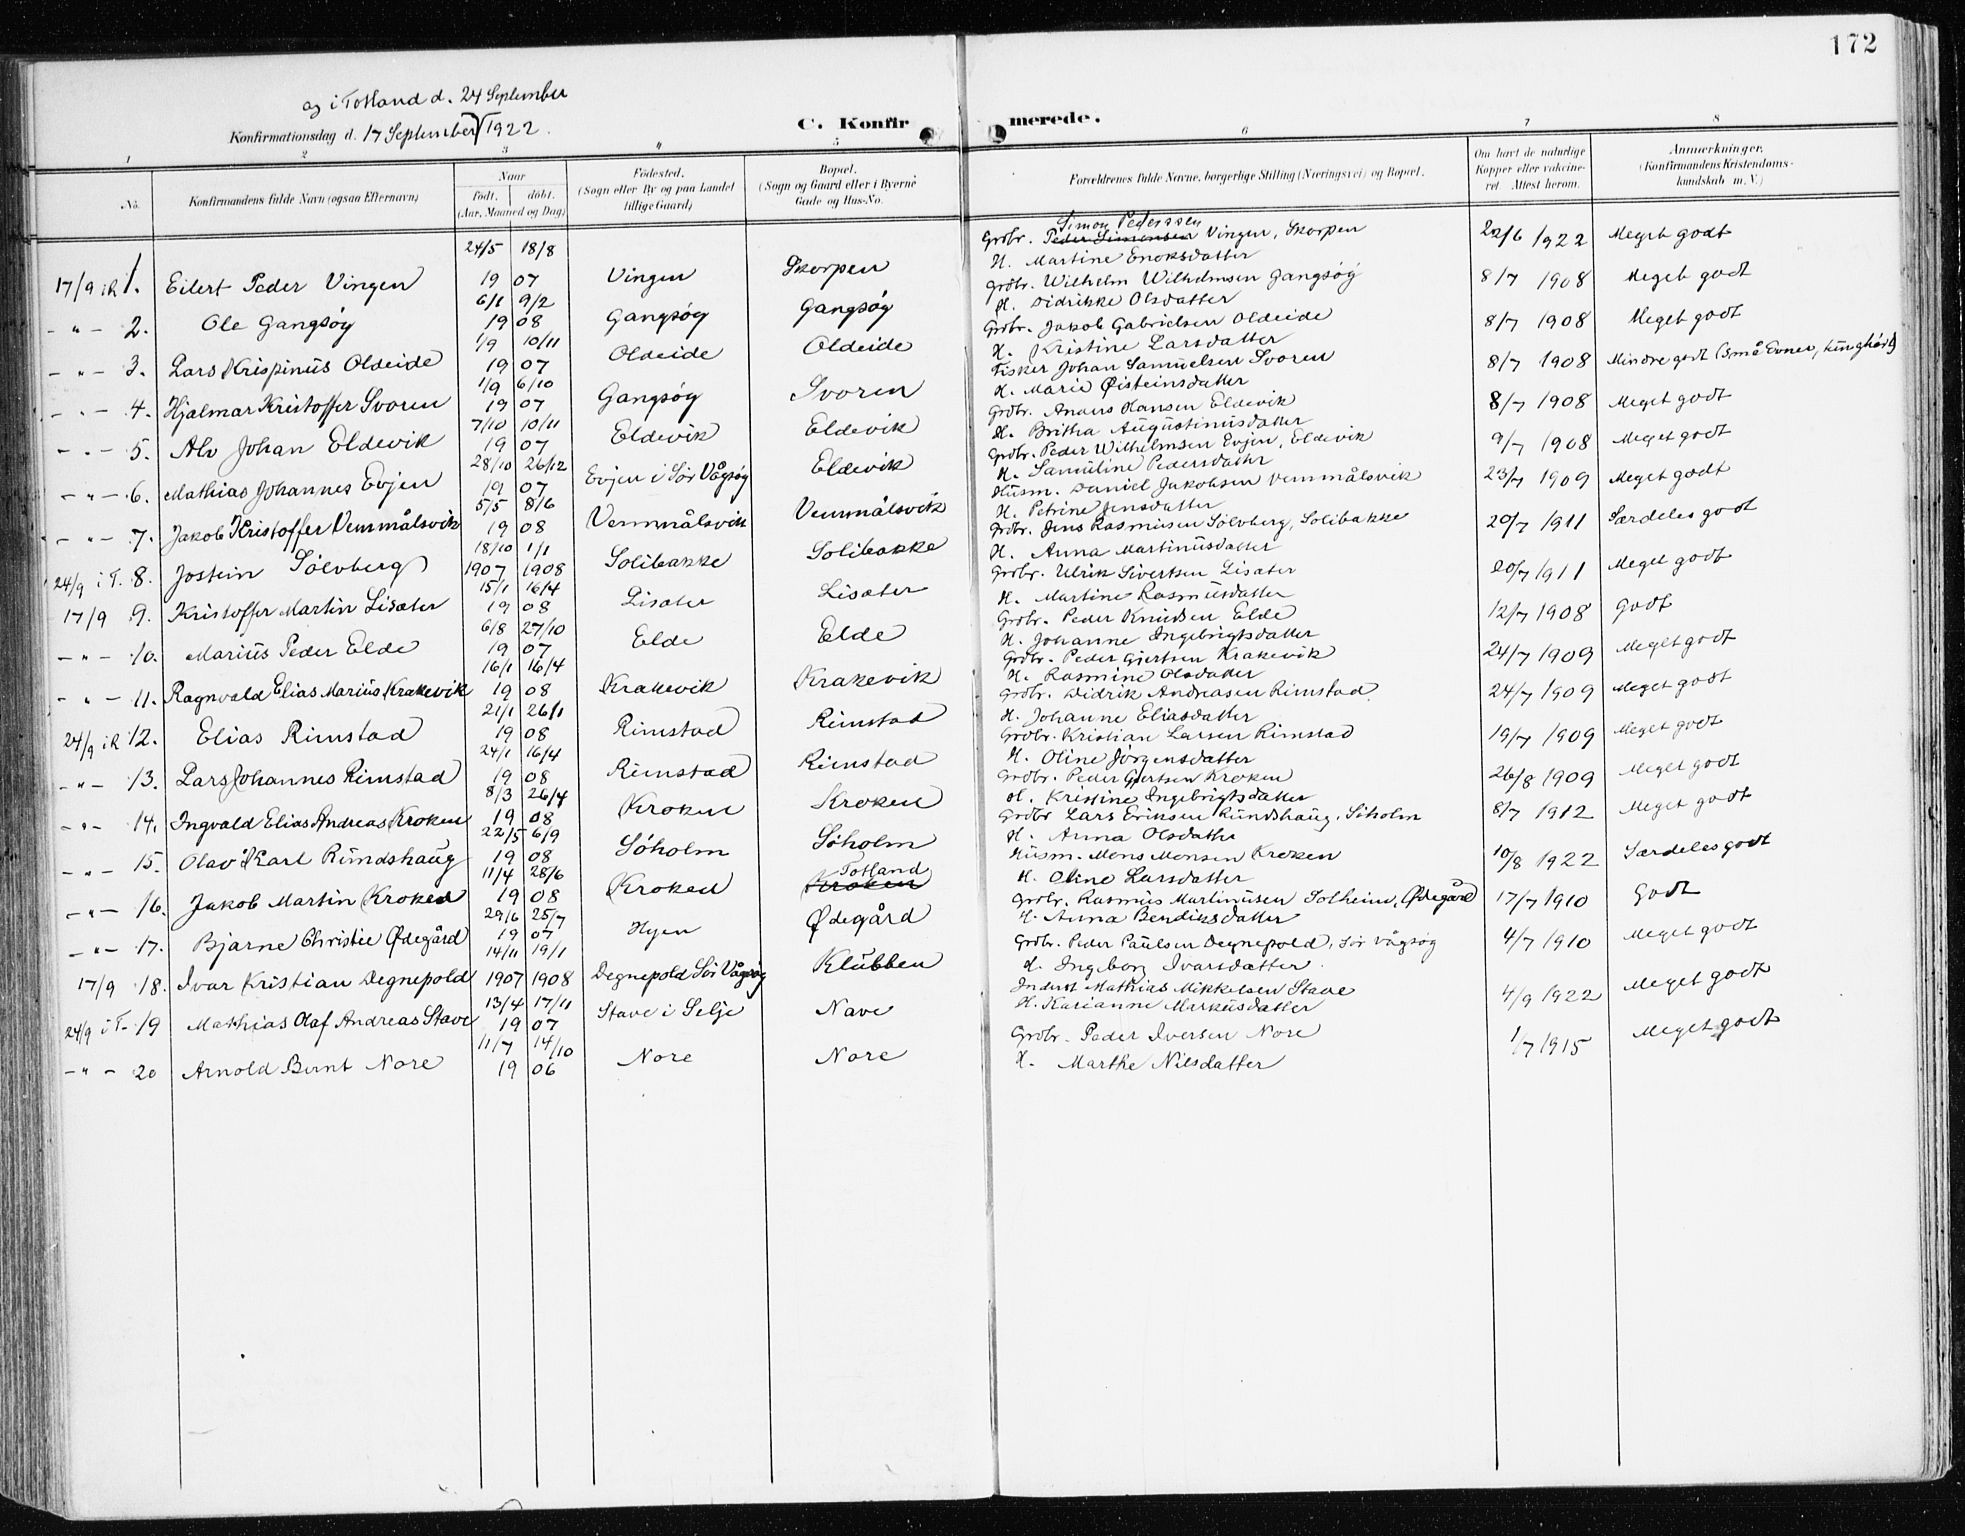 172
og i Totland d. 24 September
Konfirmationsdag d. 17 September 1922.
C. Konfirmerede.
1 2 3 4 5 6 7 8
No. Konfirmandens fulde Navn (ogsaa Efternavn) Naar Født. døbt. (Aar, Maaned og Dag) Fødested. (Sogn eller By og paa Landet tillige Gaard) Bopæl. (Sogn og Gaard eller i Byerne Gade og Hus-No. Forældrenes fulde Navne, borgerlige Stilling (Næringsvei) og Bopæl. Om havt de naturlige Kopper eller vakcineret. Attest herom. Anmærkninger. (Konfirmandens Kristendomskundskab m. V.)
17/9 i R 1. Eilert Peder Vingen 24/5 18/8 1907 Vingen Skorpen Grdbr. Simon Pederssen Peder Simonsen Vingen, Skorpen H. Martine Enoksdatter 22/6 1922 Meget godt
- " - 2. Ole Gangsøy 6/1 9/2 1908 Gangsøy Gangsøy Grdbr. Wilhelm Wilhelmsen Gangsøy H. Didrikke Olsdatter 8/7 1908 Meget godt
- " - 3. Lars Krispinus Oldeide 1/9 10/11 1907 Oldeide Oldeide Grdbr. Jakob Gabrielsen Oldeide H. Kristine Larsdatter 8/7 1908 Meget godt
- " - 4. Hjalmar Kristoffer Svoren 1/9 6/10 1907 Gangsøy Svoren Fisker Johan Samuelsen Svoren H. Marie Øisteinsdatter 8/7 1908 Mindre godt (små Evner, tunghørt)
- " - 5. Alv Johan Eldevik 7/10 10/11 1907 Eldevik Eldevik Grdbr. Anders Hansen Eldevik H. Britha Augustinusdatter 8/7 1908 Meget godt
- " - 6. Mathias Johannes Evjen 28/10 26/12 1907 Evjen i Sør Vågsøy Eldevik Grdbr. Peder Wilhelmsen Evjen, Eldevik H. Samuline Pedersdatter 9/7 1908 Meget godt
- " - 7. Jakob Kristoffer Vemmålsvik 5/5 8/6 1908 Vemmålsvik Vemmålsvik Husm. Daniel Jakobsen Vemmålsvik H. Petrine Jensdatter 23/7 1909 Meget godt
24/9 i T. 8. Jostein Sølvberg 18/10 1/1 1907 1908 Solibakke Solibakke Grdbr. Jens Rasmusen Sølvberg, Solibakke H. Anna Martinusdatter 20/7 1911 Særdeles godt
17/9 9. Kristoffer Martin Lisæter 15/1 16/4 1908 Lisæter Lisæter Grdbr. Ulrik Sivertsen Lisæter H. Martine Rasmusdatter 20/7 1911 Meget godt
- " - 10. Marius Peder Elde 6/8 27/10 1907 Elde Elde Grdbr. Peder Knudsen Elde H. Johanne Ingebrigtsdatter 12/7 1908 Godt
- " - 11. Ragnvald Elias Marius Krakevik 16/1 16/4 1908 Krakevik Krakevik Grdbr. Peder Gjertsen Krakevik H. Rasmine Olsdatter 24/7 1909 Meget godt
24/9 i R 12. Elias Rimstad 21/1 26/1 1908 Rimstad Rimstad Grdbr. Didrik Andreasen Rimstad H. Johanne Eliasdatter 24/7 1909 Meget godt
- " - 13. Lars Johannes Rimstad 24/1 16/4 1908 Rimstad Rimstad Grdbr. Kristian Larsen Rimstad H. Oline Jørgensdatter 19/7 1909 Meget godt
- " - 14. Ingvald Elias Andreas Kroken 8/3 26/4 1908 Kroken Kroken Grdbr. Peder Gjertsen Kroken H. Kristine Ingebrigtsdatter 26/8 1909 Meget godt
- " - 15. Olav Karl Rundshaug 22/5 6/9 1908 Søholm Søholm Grdbr Lars Eriksen Rundshaug, Søholm H. Anna Olsdatter 8/7 1912 Meget godt
- " - 16. Jakob Martin Kroken 11/4 28/6 1908 Kroken Totland Kroken Husm. Mons Monsen Kroken H. Oline Larsdatter 10/8 1922 Særdeles godt
- " - 17. Bjarne Christie Ødegård 29/6 25/7 1907 Hyen Ødegård Grdbr. Rasmus Martinusen Solheim, Ødegård H. Anna Bendiksdatter 17/7 1910 Godt
17/9 18. Ivar Kristian Degnepold 14/11 19/1 1907 1908 Degnepold Sør Vågsøy Klubben Grdbr. Peder Paulsen Degnepold, Sør Vågsøy H. Ingeborg Ivarsdatter 4/7 1910 Meget godt
24/9 i T- 19 Mathias Olaf Andreas Stave 13/4 17/11 1907 Stave i Selje Nave Inderst Mathias Mikkelsen Stave H. Karianne Markusdatter 4/9 1922 Meget godt
- " - 20 Arnold Bernt Nore 11/7 14/10 1906 Nore Nore Grdbr. Peder Iversen Nore H. Marthe Nilsdatter 1/7 1915 Meget godt